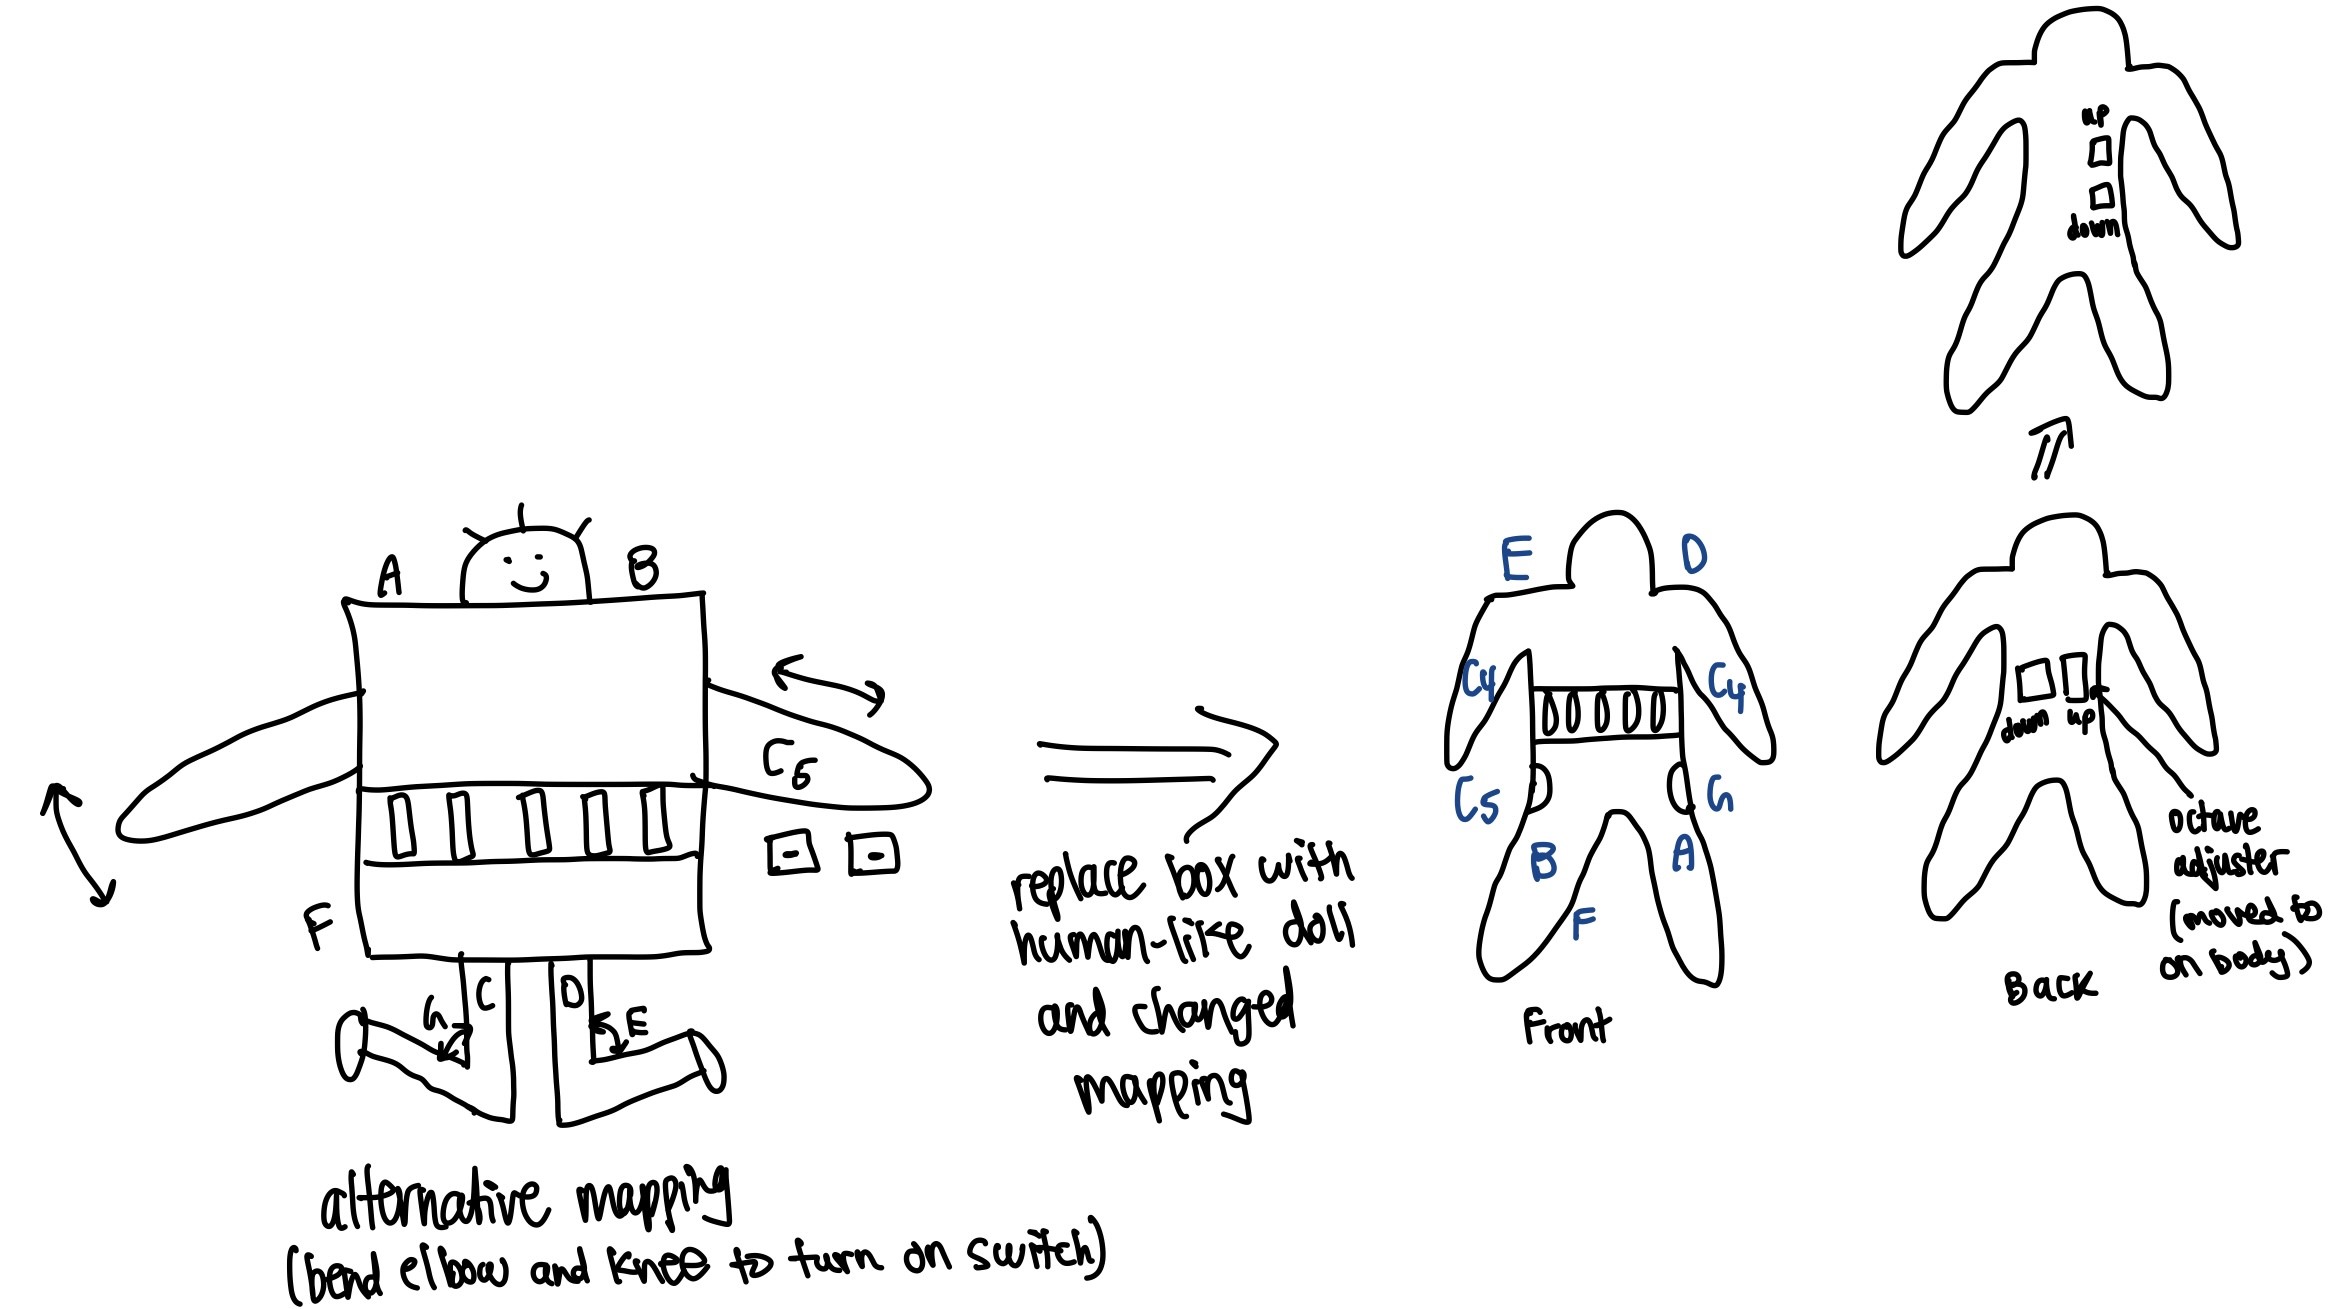 up
down
A
B
C5
F
C
D
G
E
alternative mapping
(bend elbow and knee to turn on switch)
replace box with
human-like doll
and changed
mapping
E
D
C4
C4
C5
G
B
A
F
Front
down
up
octave
adjuster
(moved to
on body)
Back